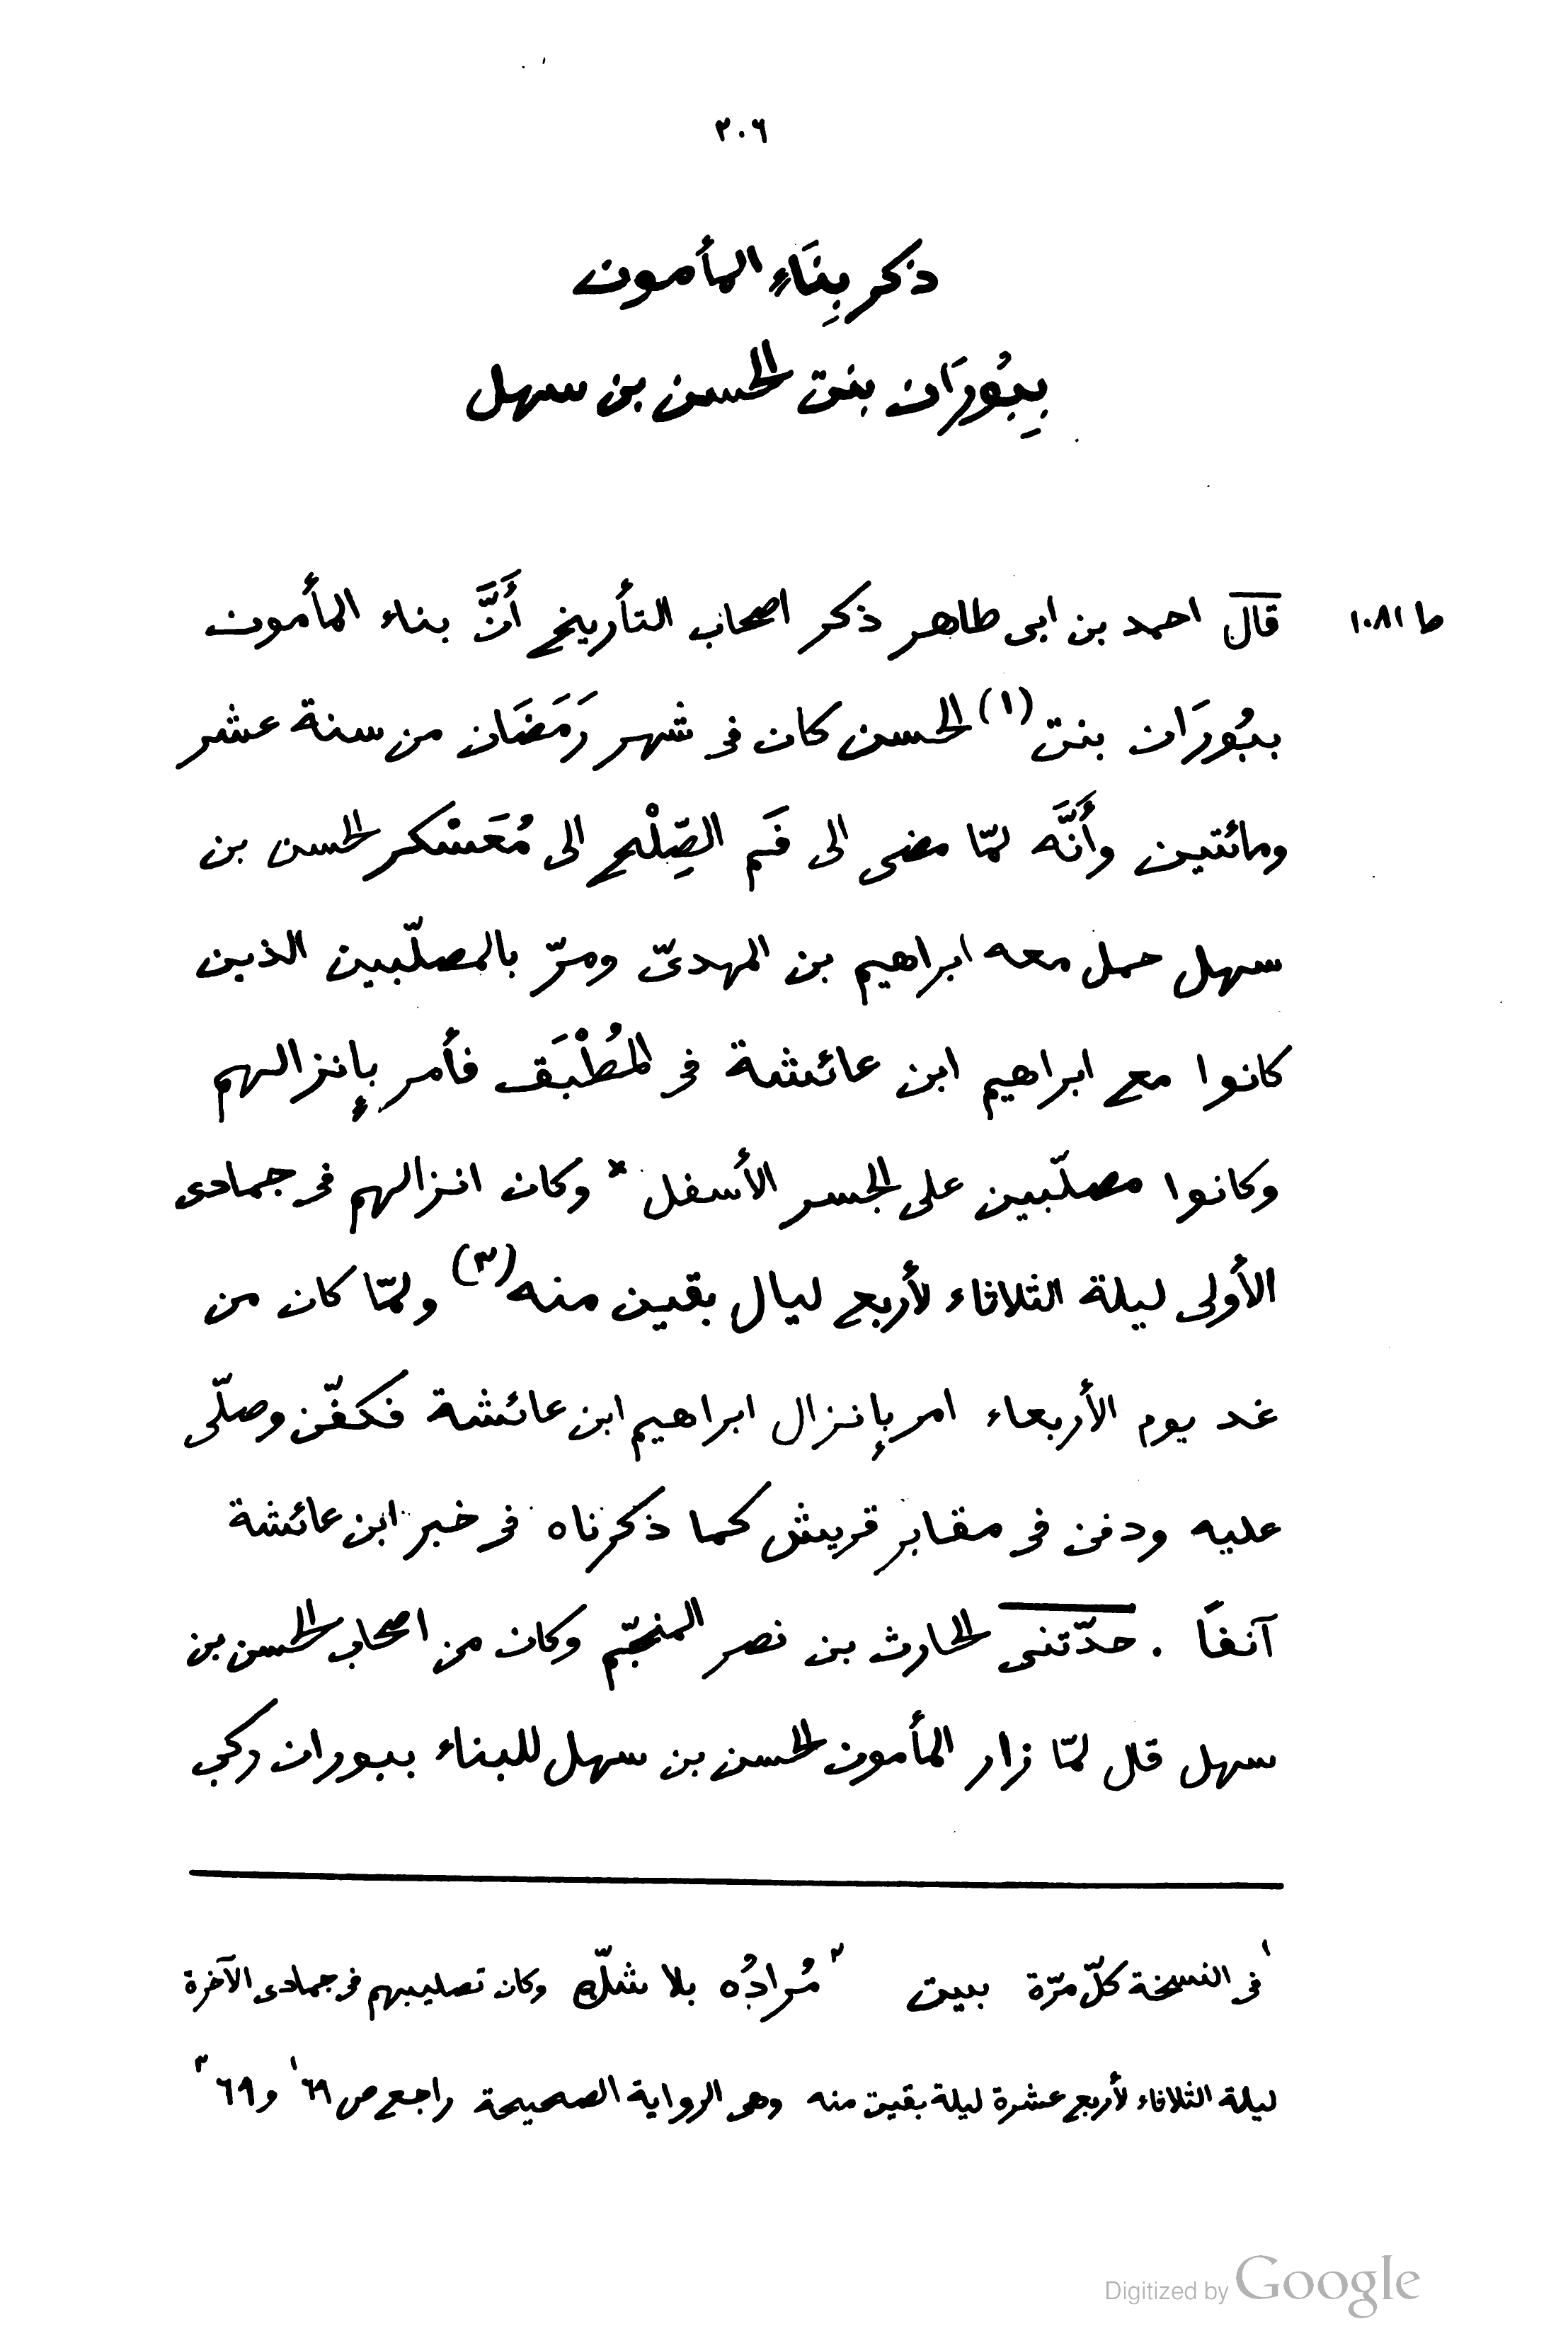 ٢٠٦
ذكر بِنَاءِ المأمون
بِبُورَان بنت الحسن بن سهل
قال احمد بن ابى طاهر ذكر اصحاب التأريخ أَنَّ بناء المأمون ط ١٠٨١
ببُورَان بنت (١) الحسن كان فى شهر رَمَضَان من سنة عشر
ومائتين وأَنَّه لمّا مضى الى فَم الصِّلْح الى مُعَسْكر الحسن بن
سهل حمل معه ابراهيم بن المهدىّ ومرّ بالمصلّبين الذين
كانوا مع ابراهيم ابن عائشة فى المُطْبَق فأمر بإنزالهم
وكانوا مصلّبين على الجسر الأسفل * وكان انزالهم فى جمادى
الأولى ليلة الثلاثاء لأربع ليال بقين منه (٢) ولمّا كان من
غد يوم الأربعاء امر بإنزال ابراهيم ابن عائشة فكفّن وصلّى
عليه ودفن فى مقابر قريش كما ذكرناه فى خبر ابن عائشة
آنفًا . حدّثنى الحارث بن نصر المنجّم وكان من اصحاب الحسن بن
سهل قال لمّا زار المأمون الحسن بن سهل للبناء ببوران ركب
١ فى النسخة كلّ مرّة ببيت ٢ مُرادُه بلا شكّ وكان تصليبهم فى جمادى الآخرة
ليلة الثلاثاء لأربع عشرة ليلة بقيت منه وهى الرواية الصحيحة راجع ص ٦٩ ١ و ٦٩ ٣
Digitized by Google